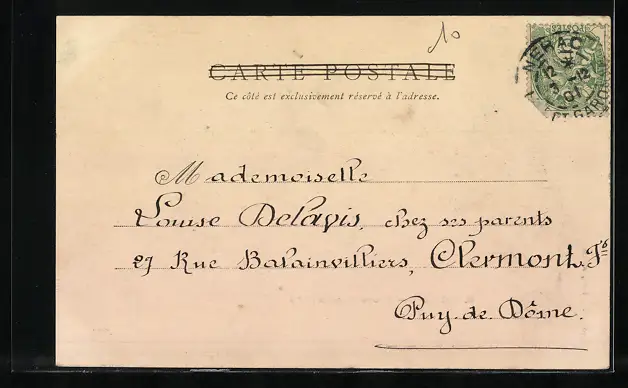 10
CARTE POSTALE
Ce côté est exclusivement réservé à l'adresse.
NERAC
12
3 12
01
LOT-ET-GARONNE
Mademoiselle
Louise Delapis, chez ses parents
27 Rue Balainvilliers, Clermont-Fd
Puy-de-Dôme.